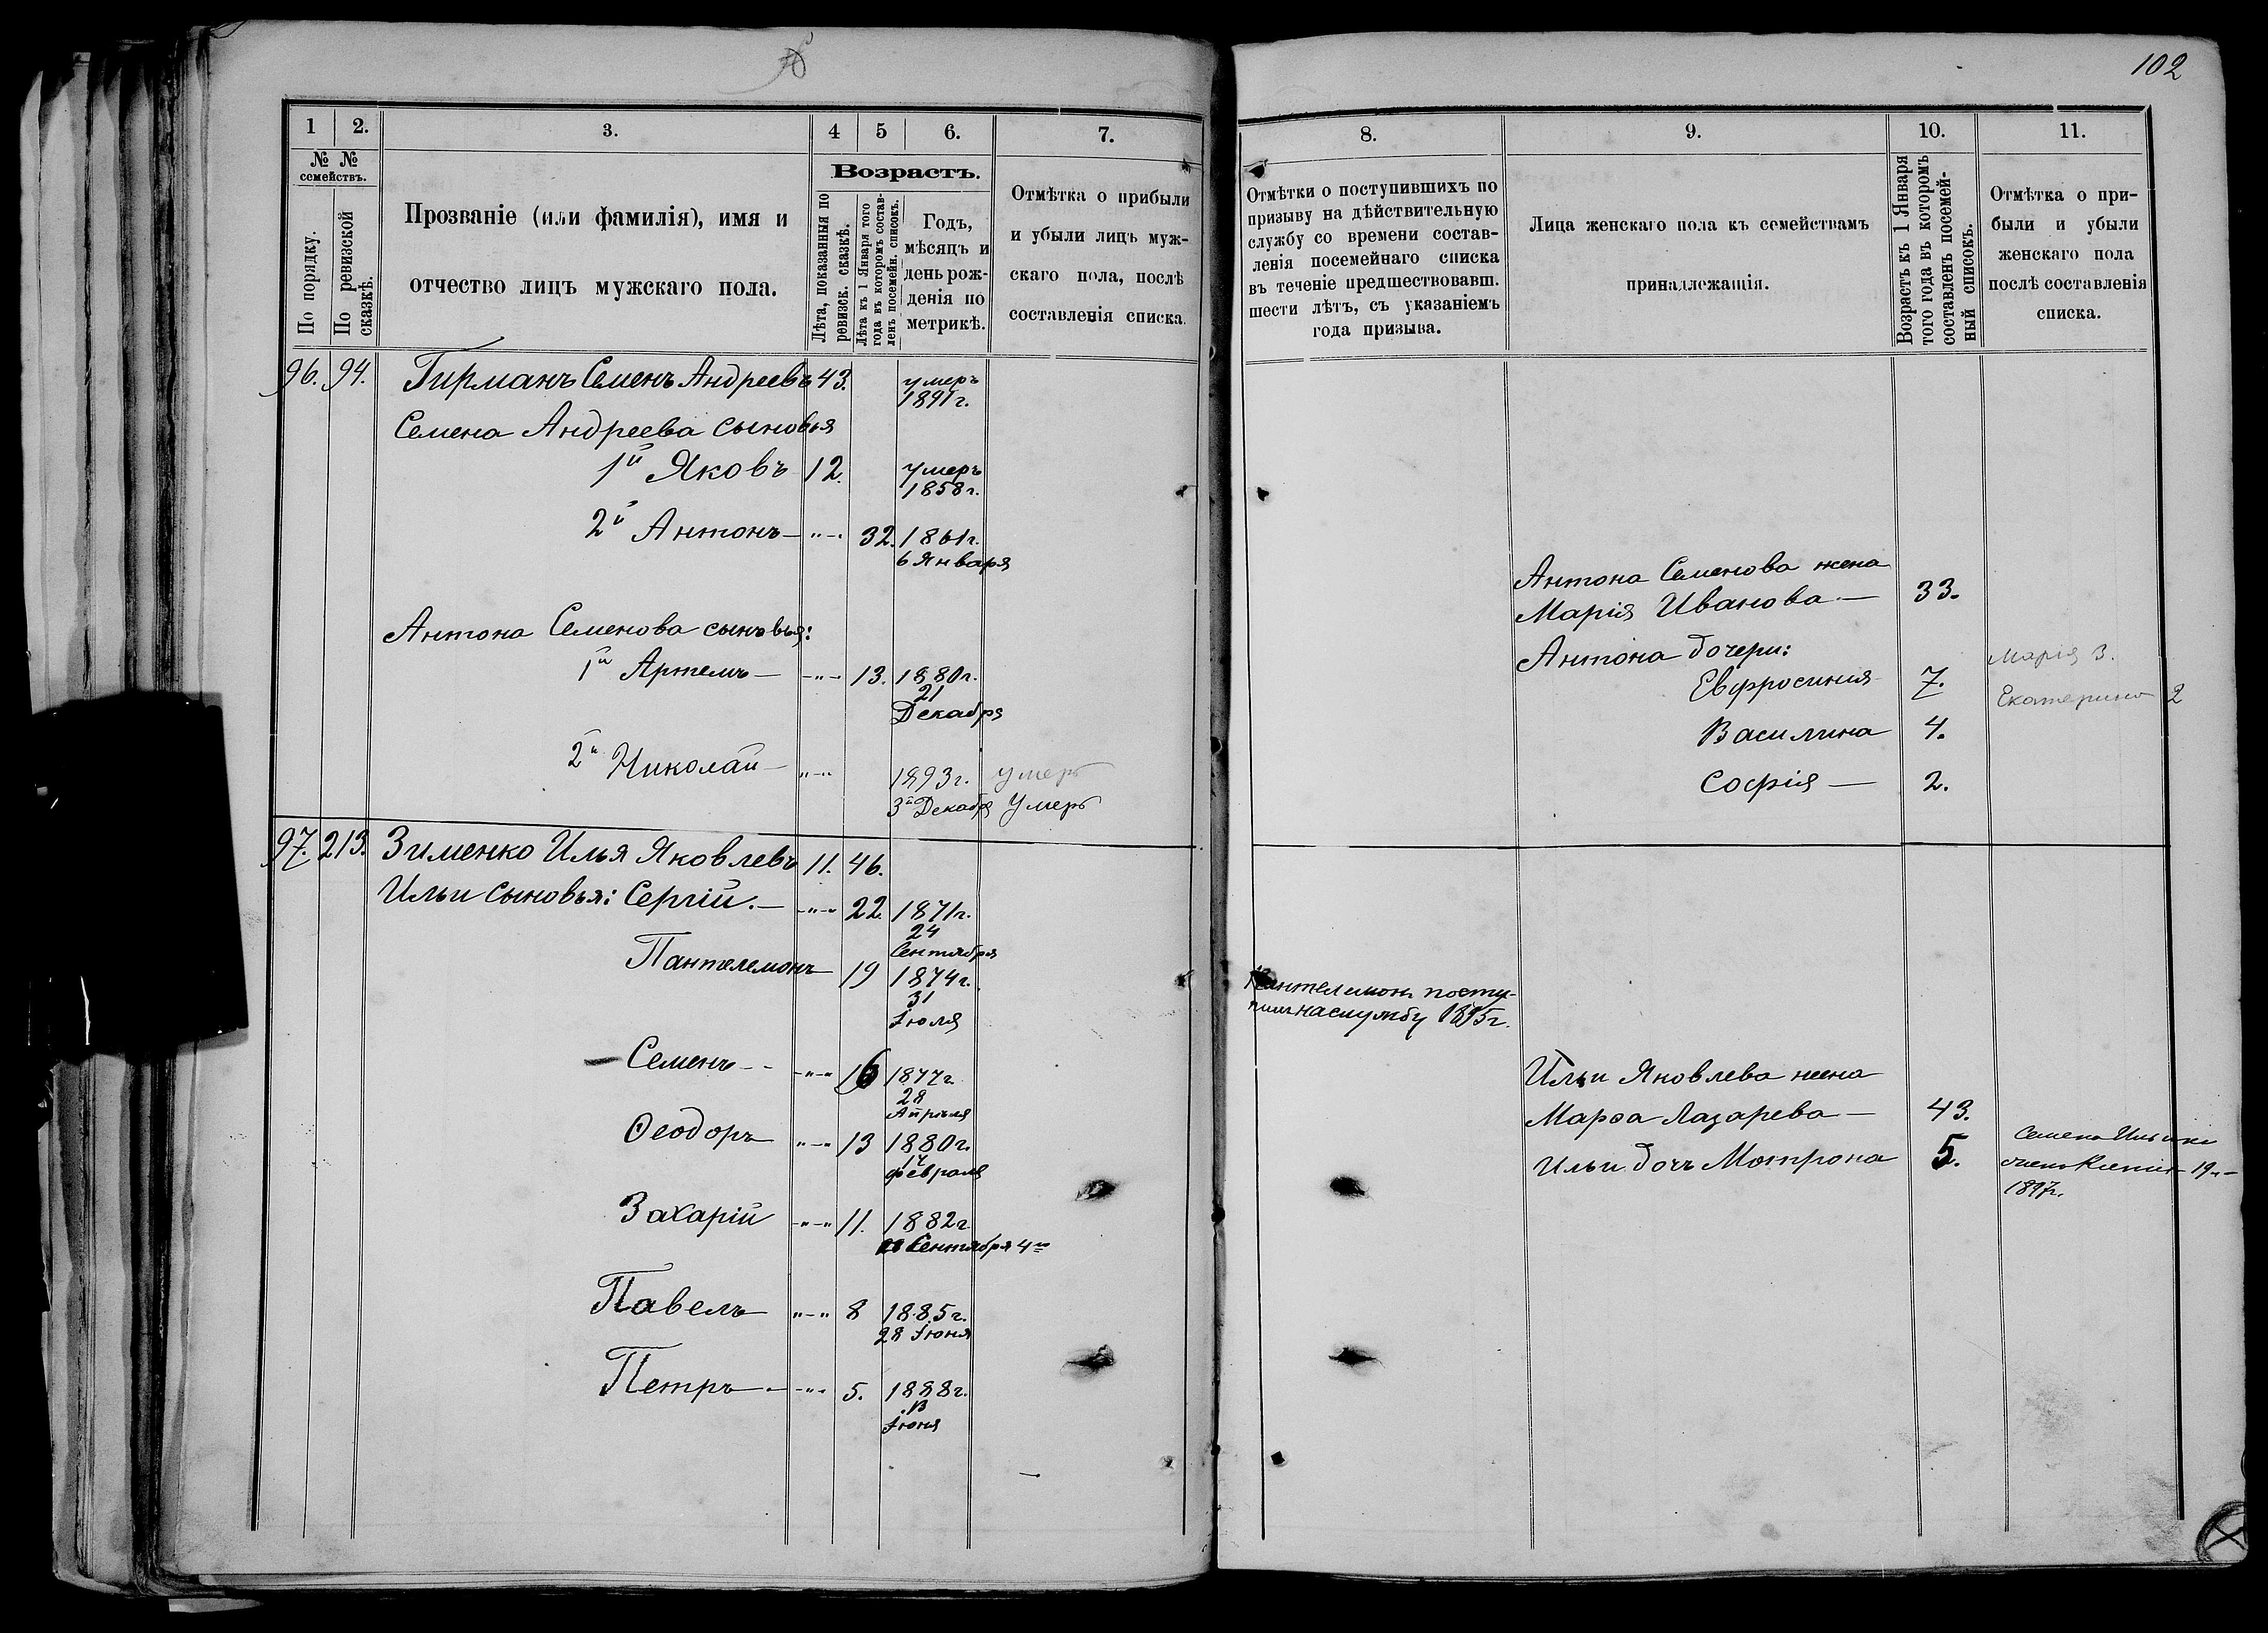 102
1
2.
3.
4
5
6.
7.
№ №
семействъ.
По порядку.
По ревизской
сказкѣ.
Прозваніе (или фамилія), имя и
отчество лицъ мужскаго пола.
Возрастъ.
Лѣта, показанныя по
ревизск. сказкѣ.
Лѣта къ 1 Января того
года въ которомъ состав-
ленъ посемейн. списокъ.
Годъ,
мѣсяцъ и
день рож-
денія по
метрикѣ.
Отмѣтка о прибыли
и убыли лицъ муж-
скаго пола, послѣ
составленія списка.
96. 94. Гирманъ Семенъ Андреевъ 43. умеръ
1891 г.
Семена Андреева сыновья
1й Яковъ 12. умеръ
1858 г.
2й Антонъ — „ — 32. 1861 г.
6 Января
Антона Семенова сыновья:
1й Артемъ — „ — 13. 1880 г.
21
Декабря
2й Николай — „ — 1893 г. умеръ
3го Декабря Умеръ
97. 213. Зименко Илья Яковлевъ 11. 46.
Ильи сыновья: Сергій. — „ — 22. 1871 г.
24
Сентября
Пантелемонъ 19 1874 г.
31
Іюля
Семенъ — „ — 16 1877 г.
28
Апрѣля
Ѳеодоръ „ — „ 13 1880 г.
14
февраля
Захарій „ — „ 11. 1882 г.
Сентября 4го
Павелъ „ — „ 8 1885 г.
28 Іюня
Петръ — „ — 5. 1888 г.
13
Іюня
8.
9.
10.
11.
Отмѣтки о поступившихъ по
призыву на дѣйствительную
службу со времени состав-
ленія посемейнаго списка
въ теченіе предшествовавш.
шести лѣтъ, съ указаніемъ
года призыва.
Лица женскаго пола къ семействамъ
принадлежащія.
Возрастъ къ 1 Января
того года въ которомъ
составленъ посемей-
ный списокъ.
Отмѣтка о при-
были и убыли
женскаго пола
послѣ составленія
списка.
Антона Семенова жена
Марія Иванова — 33.
Антона дочери:
Марія 3.
Евфросинія 7.
Екатерина 2
Василина 4.
Софія — 2.
Пантелемонъ посту-
пилъ на службу 1895 г.
Ильи Яковлева жена
Марѳа Лазарева — 43.
Ильи дочь Мотрона 5.
Семена Ильи
19
1897 г.